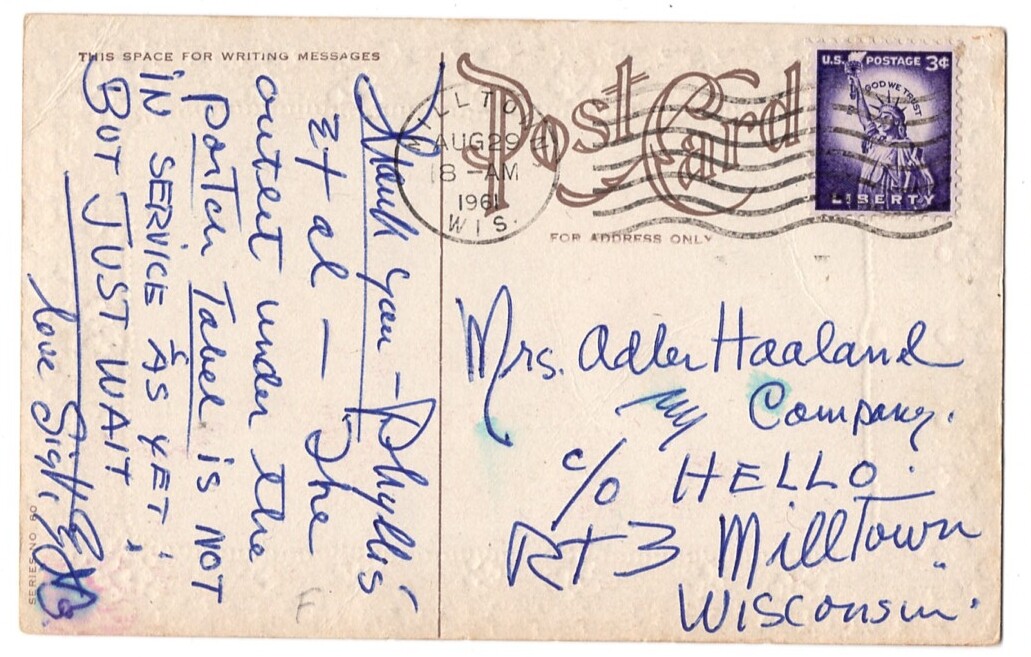 THIS SPACE FOR WRITING MESSAGES
Thank you - Phylli's
Et al — The
outlet under the
portch Tabel is NOT
IN SERVICE AS YET!
BUT JUST WAIT!
love Sig,
SERIES NO. 60
F
Post Card
FOR ADDRESS ONLY
AUG 29
8 -AM
1961
WIS.
U.S. POSTAGE 3¢
IN GOD WE TRUST
LIBERTY
Mrs. Adler Haaland
my Company.
c/o HELLO.
Rt 3 Milltown
Wisconsin.